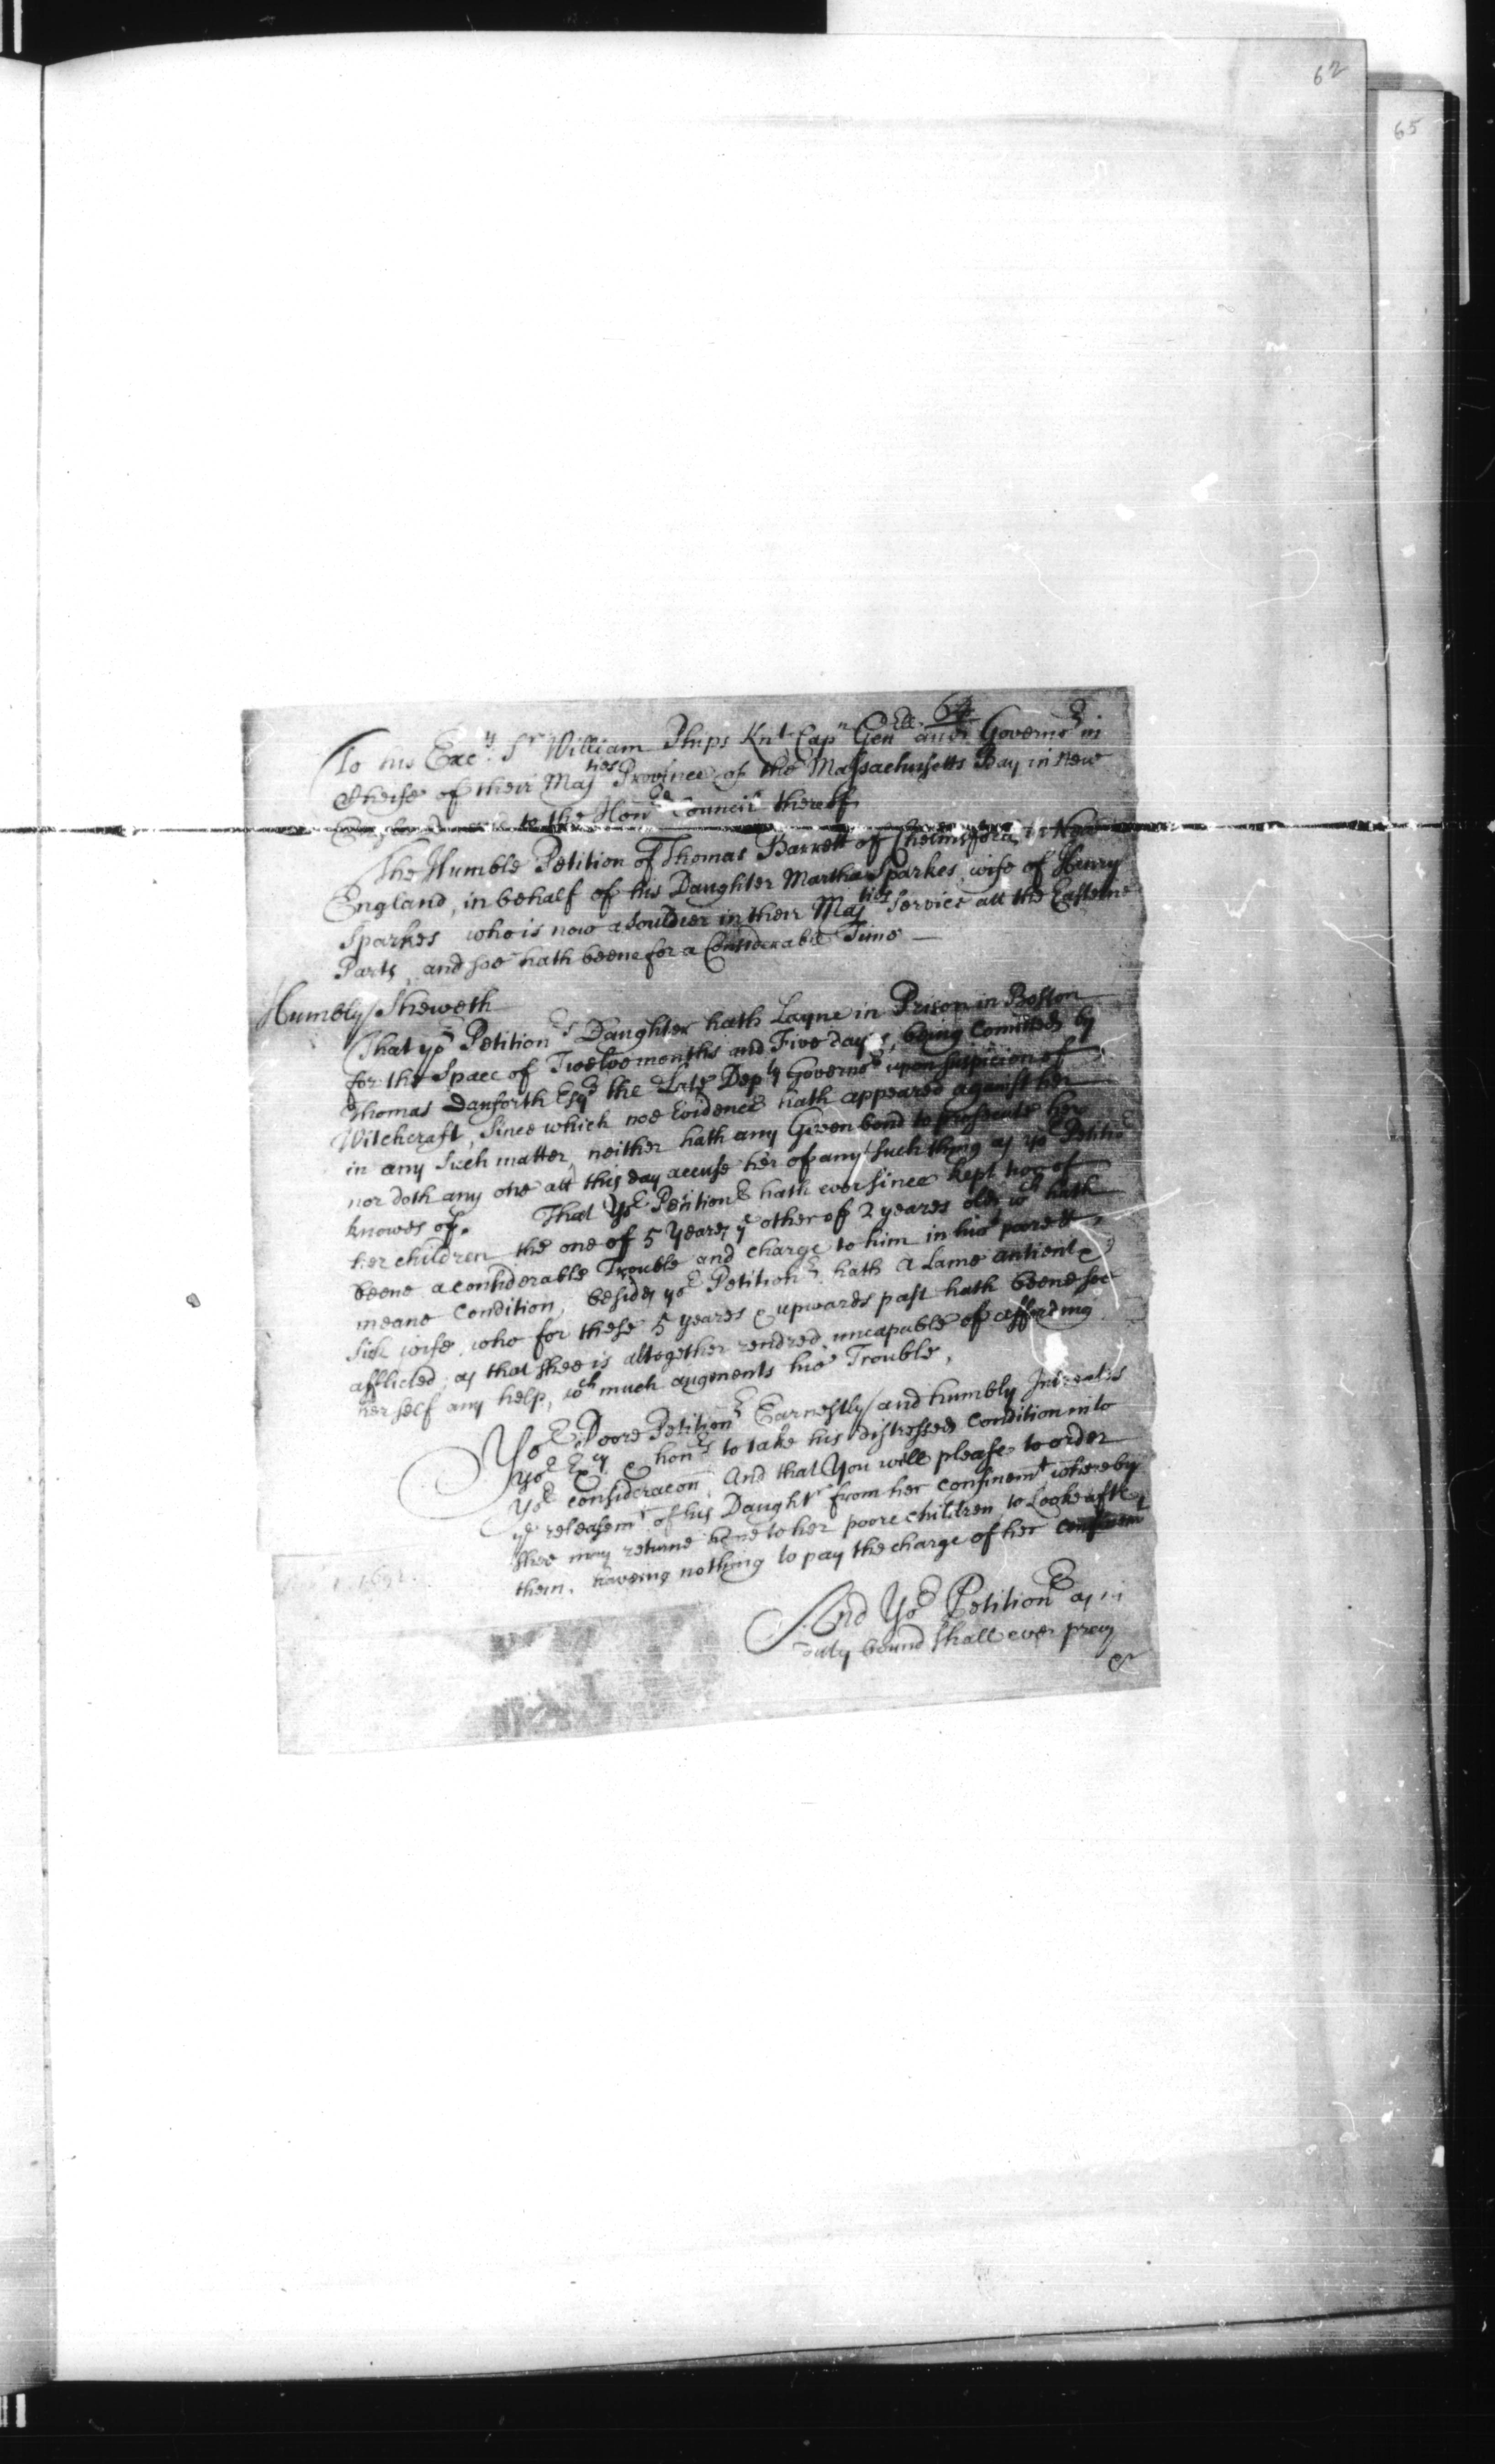 62
65
64
To his Excy. Sr William Phips Knt Capn Genll. and Governr in
Cheife of their Majties Province of the Massachusetts Bay in New
England to the Honble Council thereof
The Humble Petition of Thomas Barrett of Chelmsford in New
England, in behalf of his Daughter Martha Sparkes, wife of Henry
Sparkes who is now a Souldier in their Majties Service att the Easterne
Parts, and soe hath beene for a Considerable Time
Humbly Sheweth
That yor Petitionrs Daughter hath Layne in Prison in Boston
for the Space of Twelve months and Five days, being Comitted by
Thomas Danforth Esqr the Late Depty Governor upon suspicion of
Witchcraft, Since which noe Evidence hath appeared against her
in any Such matter, neither hath any Given bond to prosecute her
nor doth any one att this day accuse her of any Such thing as yor Petitior
knowes of. That Yor Petitionr hath ever since kept two of
her children the one of 5 Years ye other of 2 yeares old, wch hath
beene a considerable Trouble and charge to him in his poore &
meane Condition, besides yor Petitionr hath a Lame antient &
Sick wife, who for these 5 yeares & upwards past hath beene soe
afflicted, as that shee is altogether rendred uncapable of affording
her self any help, wch much augments his Trouble,
Yor Poore Petitionr Earnestly and humbly Intreates
yor Excy & honrs to take his distressed Condition into
yor consideracon, And that You will please to order
ye releasemt of his Daughtr from her confinemt whereby
shee may returne home to her poore children to Looke after
them, haveing nothing to pay the charge of her confinemt
And Yor Petitionr as in
duty bound shall ever pray
&c
1. 1692.